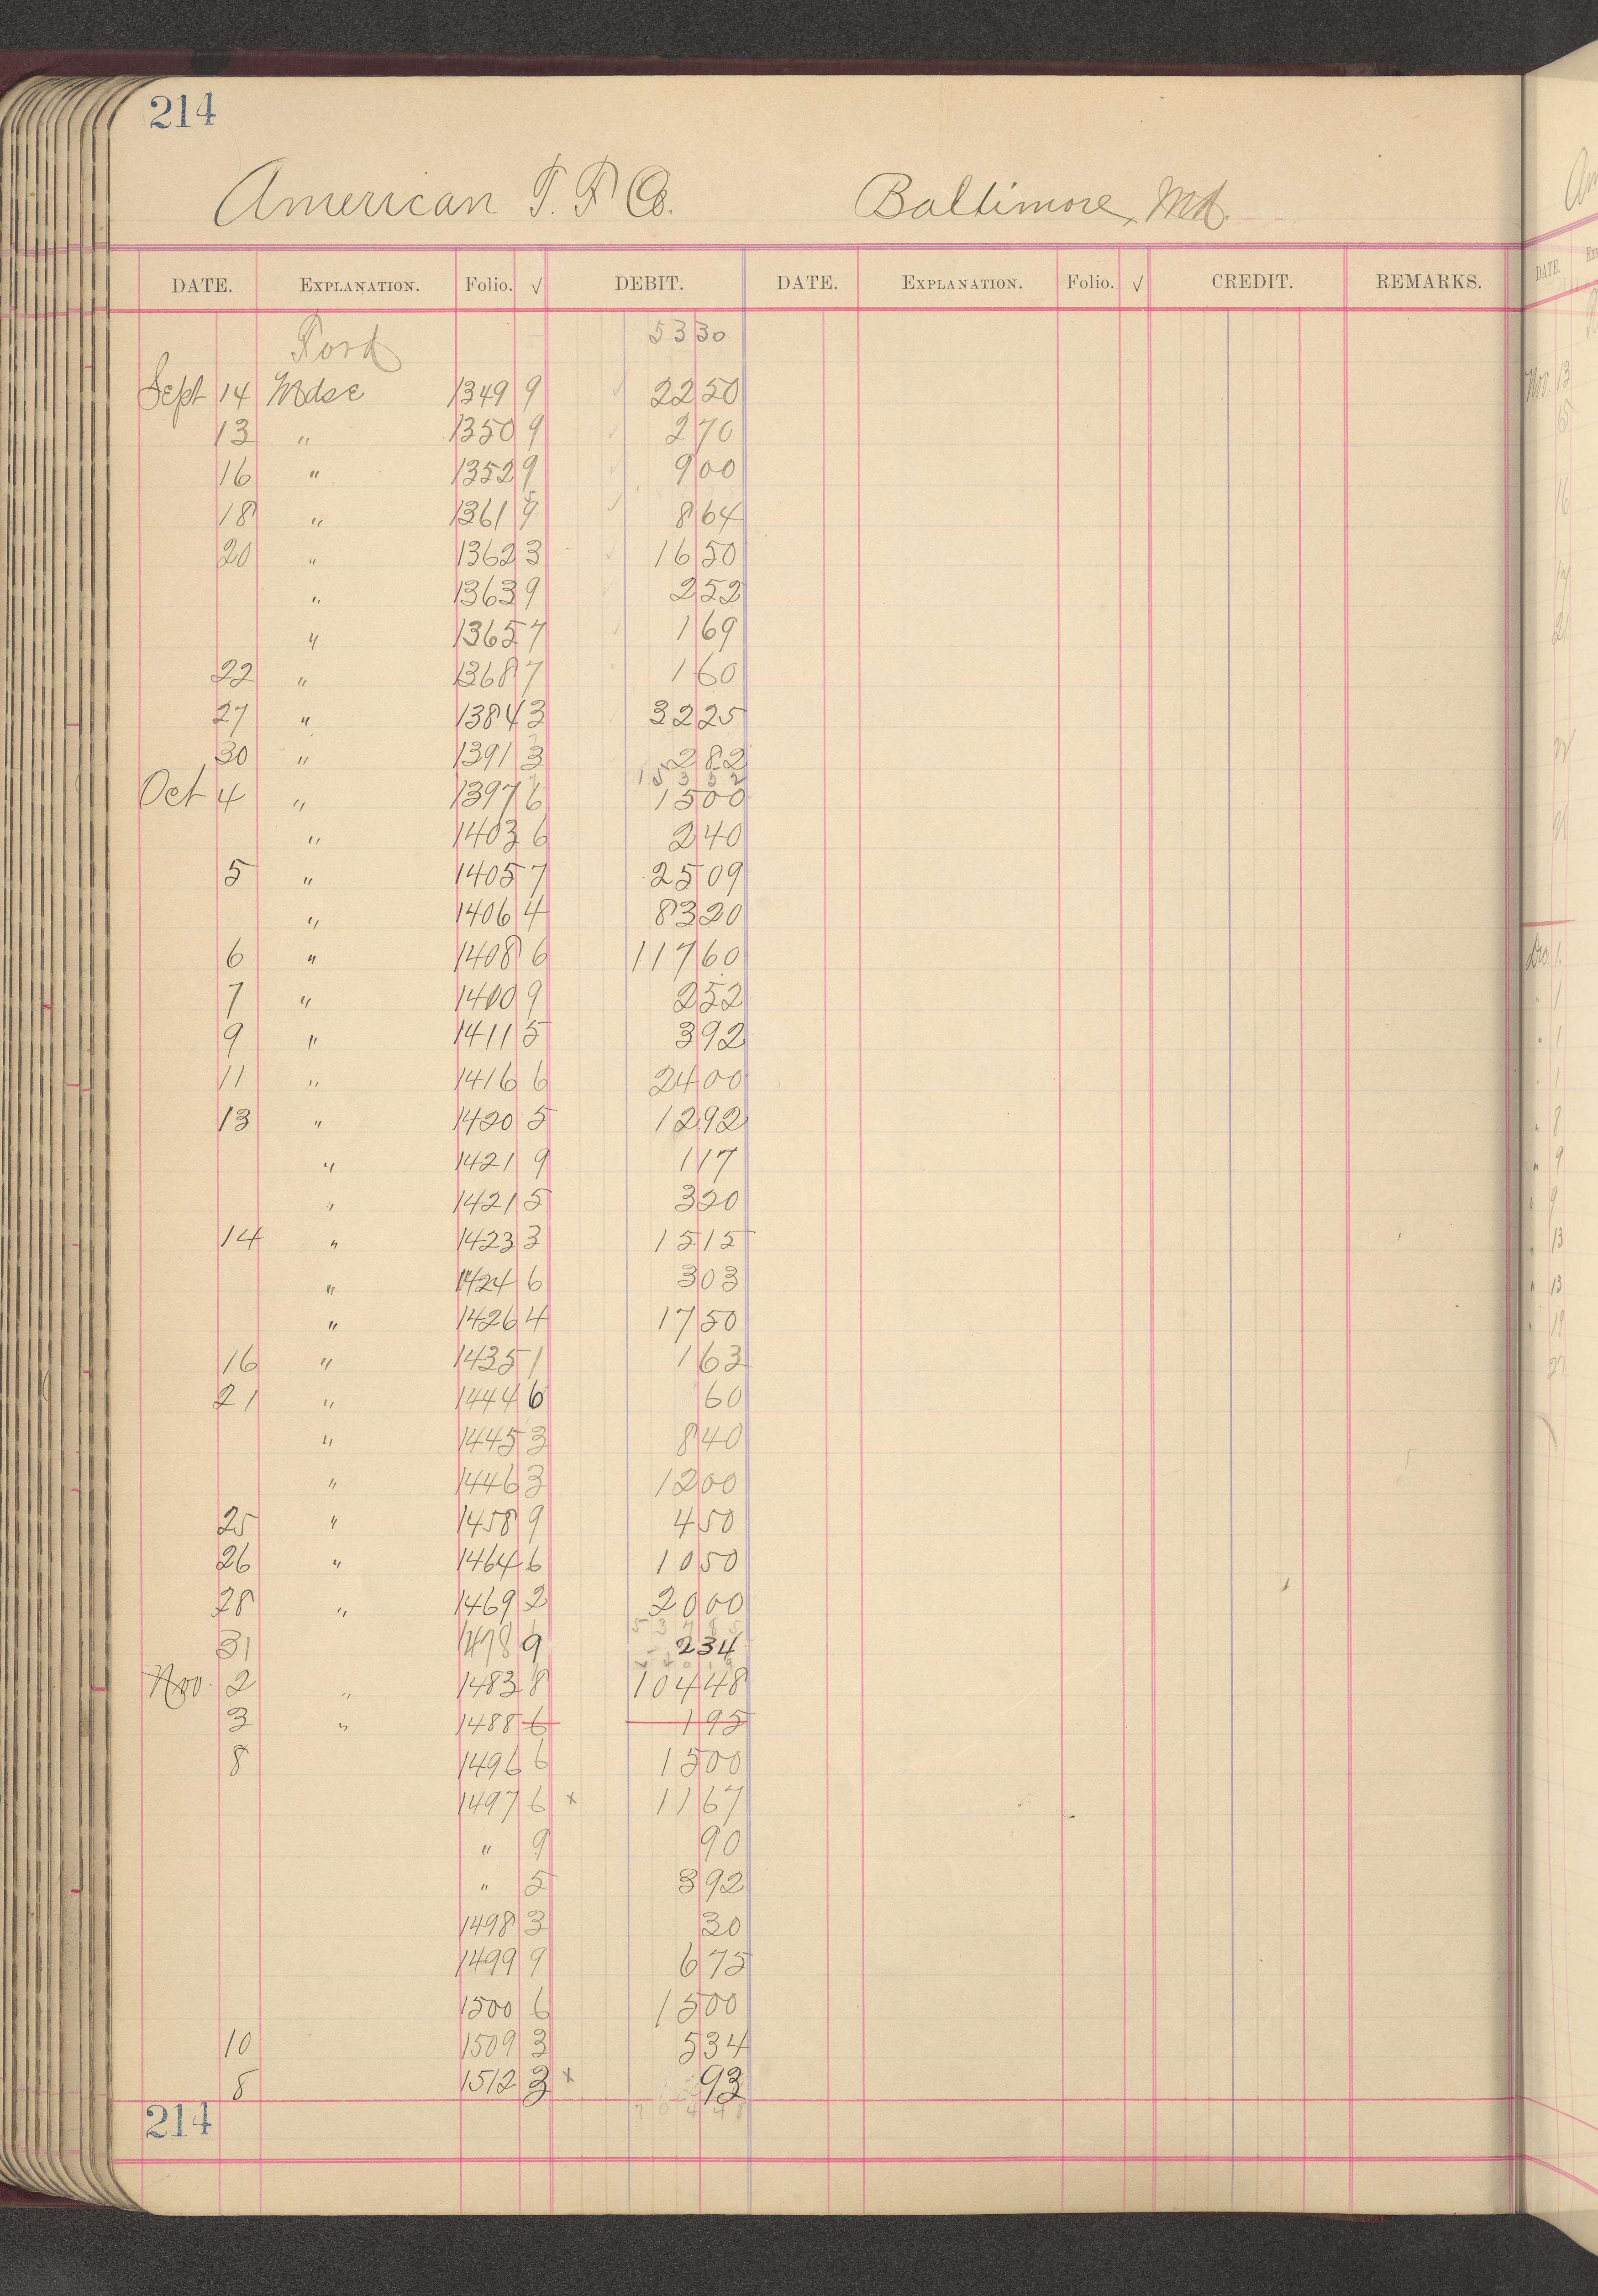 214
American T. F Co. Baltimore, Md.
DATE. EXPLANATION. Folio. √ DEBIT. DATE. EXPLANATION. Folio. √ CREDIT. REMARKS.
Ford 53 30
Sept 14 Mdse 1349 9 22 50
13 " 1350 9 2 70
16 " 1352 9 9 00
18 " 1361 9 8 64
20 " 1362 3 16 50
" 1363 9 2 52
" 1365 7 1 69
22 " 1368 7 1 60
27 " 1384 3 32 25
30 " 1391 3 2 82
153 52
Oct 4 " 1397 6 15 00
" 1403 6 2 40
5 " 1405 7 25 09
" 1406 4 83 20
6 " 1408 6 117 60
7 " 1409 9 2 52
9 " 1411 5 3 92
11 " 1416 6 24 00
13 " 1420 5 12 92
" 1421 9 1 17
" 1421 5 3 20
14 " 1423 3 15 15
" 1424 6 3 03
" 1426 4 17 50
16 " 1435 1 1 63
21 " 1444 6 60
" 1445 3 8 40
" 1446 3 12 00
25 " 1458 9 4 50
26 " 1464 6 10 50
28 " 1469 2 20 00
31 1478 9 2 34
Nov. 2 " 1483 8 104 48
3 " 1488 6 1 95
8 1496 6 15 00
1497 6 x 11 67
" 9 90
" 5 3 92
1498 3 30
1499 9 6 75
1500 6 15 00
10 1509 3 5 34
8 1512 3 x 93
214